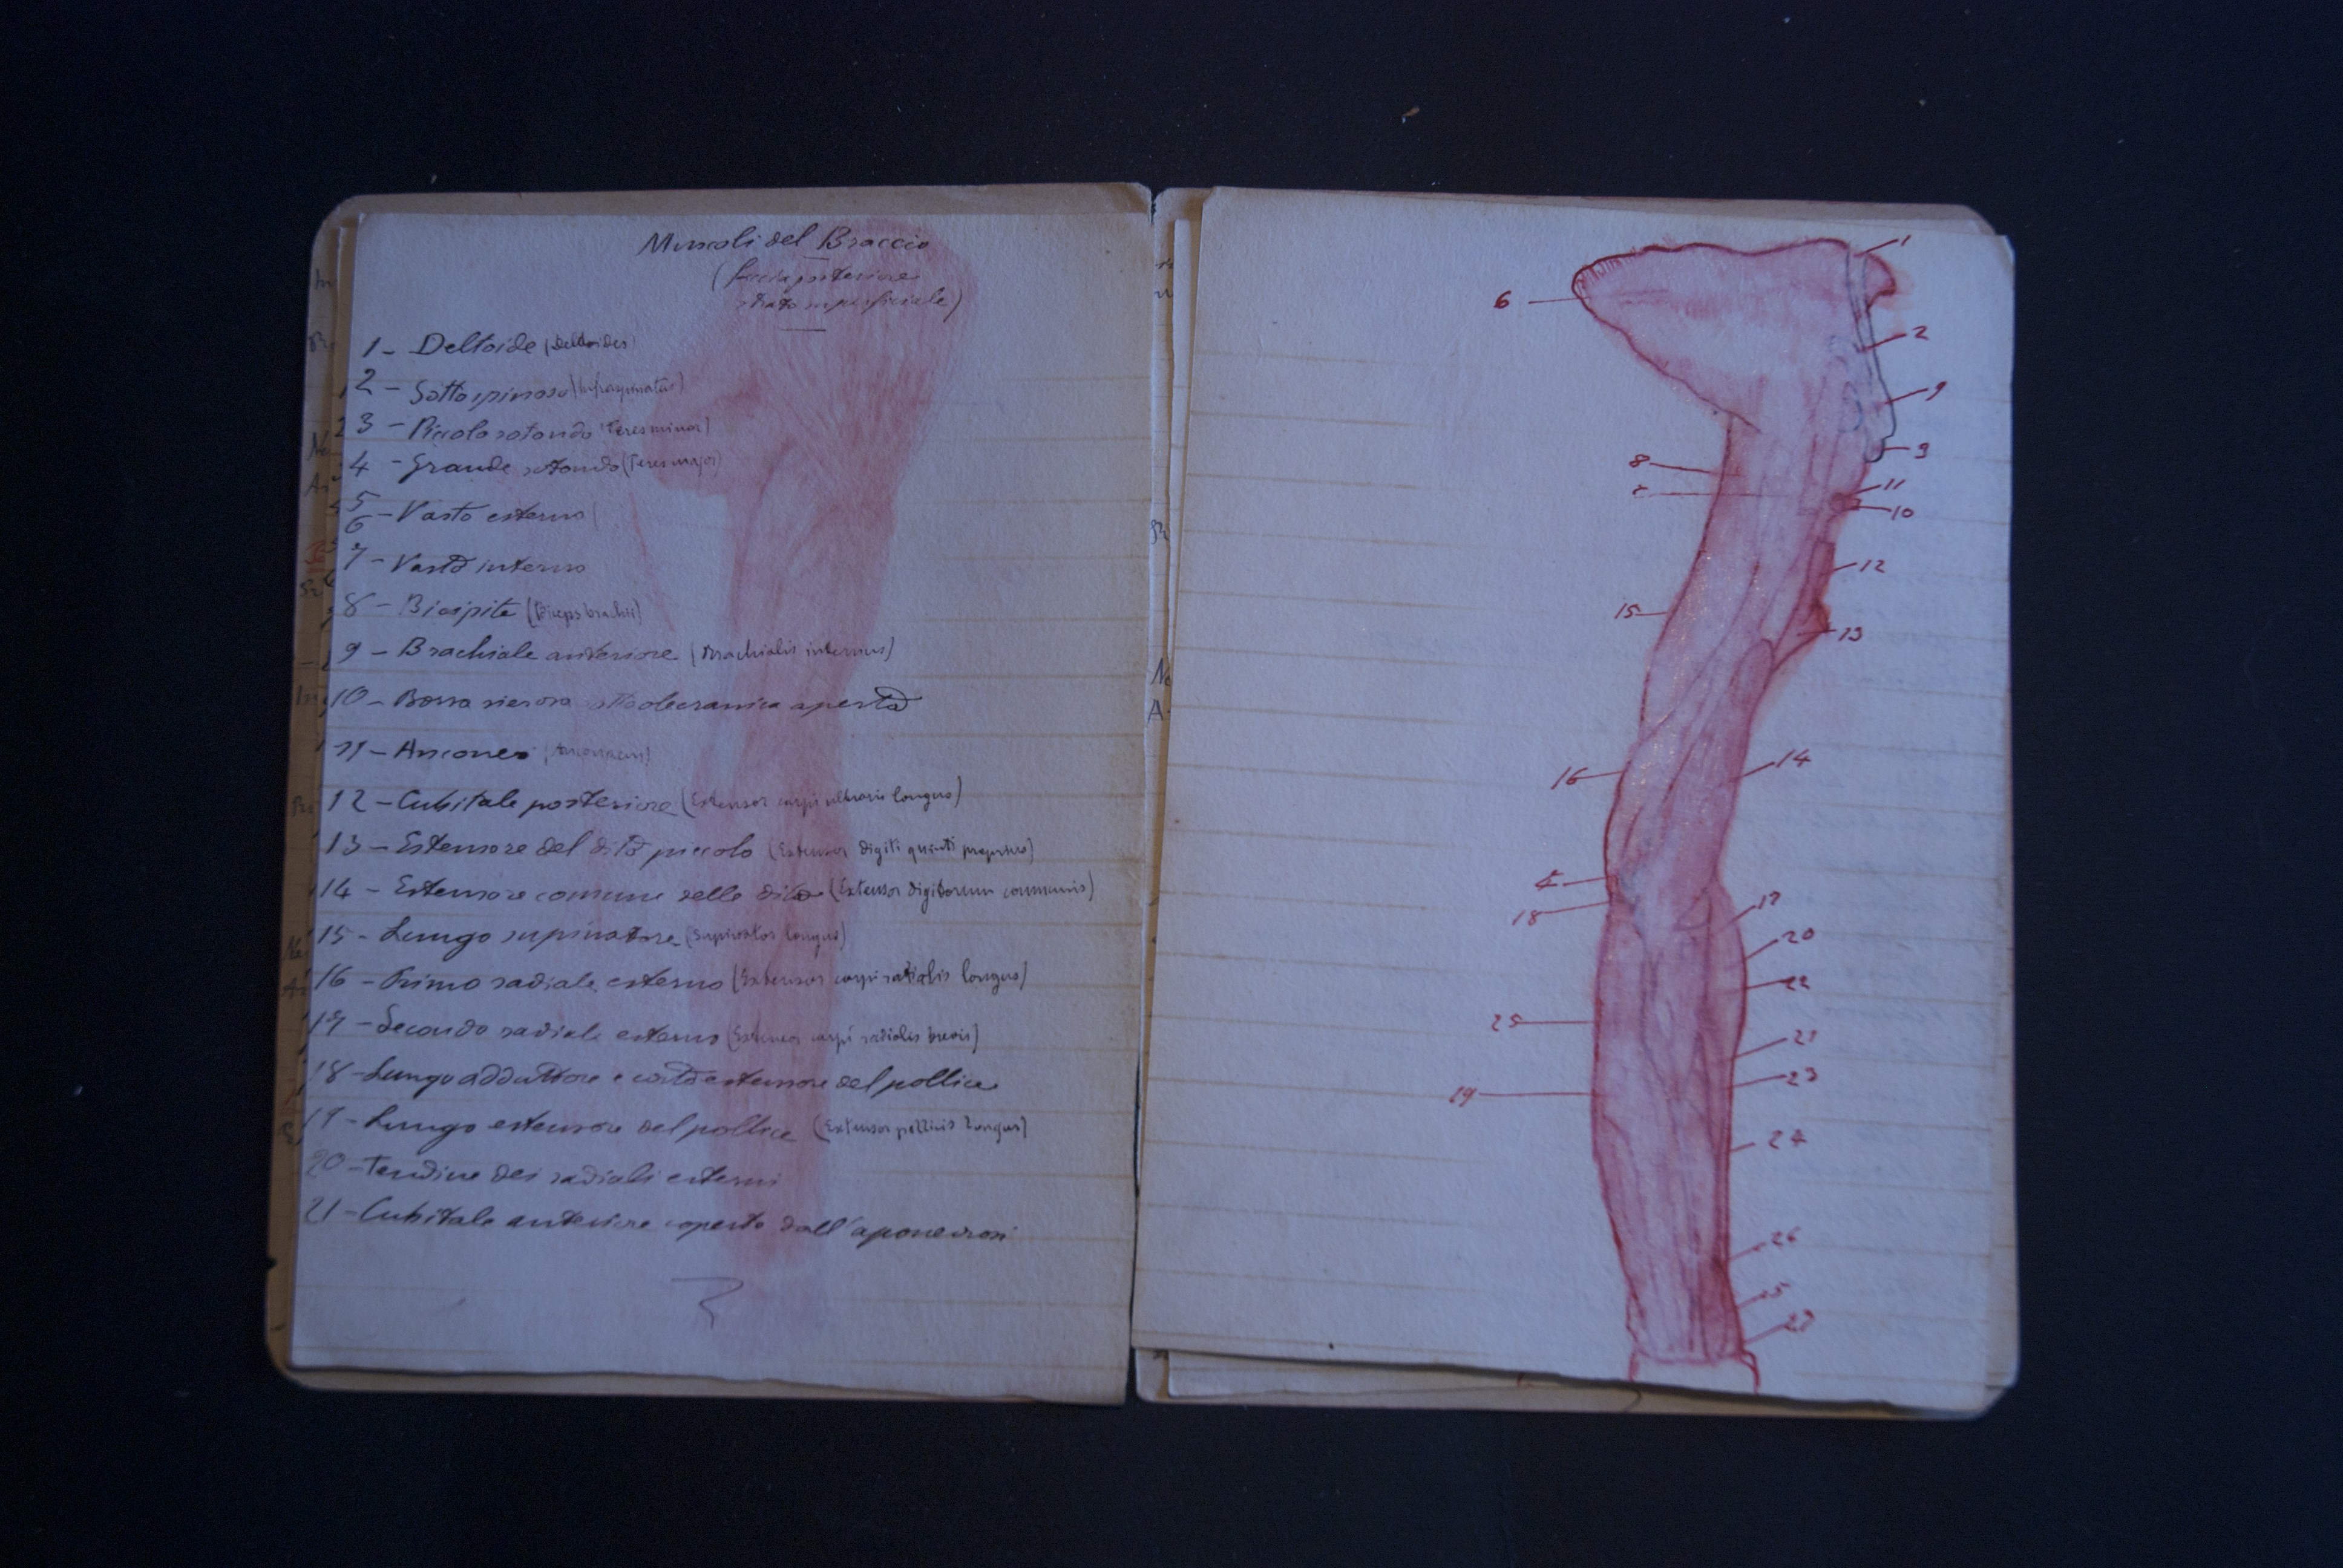 Muscoli del Braccio
(faccia posteriore
strato superficiale)
1 - Deltoide (Deltoides)
2 - Sottospinoso (Infraspinatus)
3 - Piccolo rotondo (Teres minor)
4 - Grande rotondo (Teres major)
5
6 - Vasto esterno (
7 - Vasto interno
8 - Bicipite (Biceps brachii)
9 - Brachiale anteriore (Brachialis internus)
10 - Borsa sierosa olecranica aperta
11 - Anconeo (Anconaeus)
12 - Cubitale posteriore (Extensor carpi ulnaris longus)
13 - Estensore del dito piccolo (Extensor digiti quinti proprius)
14 - Estensore comune delle dita (Extensor digitorum communis)
15 - Lungo supinatore (Supinator longus)
16 - Primo radiale esterno (Extensor carpi radialis longus)
17 - Secondo radiale esterno (Extensor carpi radialis brevis)
18 - Lungo adduttore e corto estensore del pollice
19 - Lungo estensore del pollice (Extensor pollicis longus)
20 - Tendine dei radiali esterni
21 - Cubitale anteriore coperto dall'aponevrosi
1
6
2
9
3
8
11
10
12
15
13
14
16
18
17
20
22
25
21
23
19
24
26
27